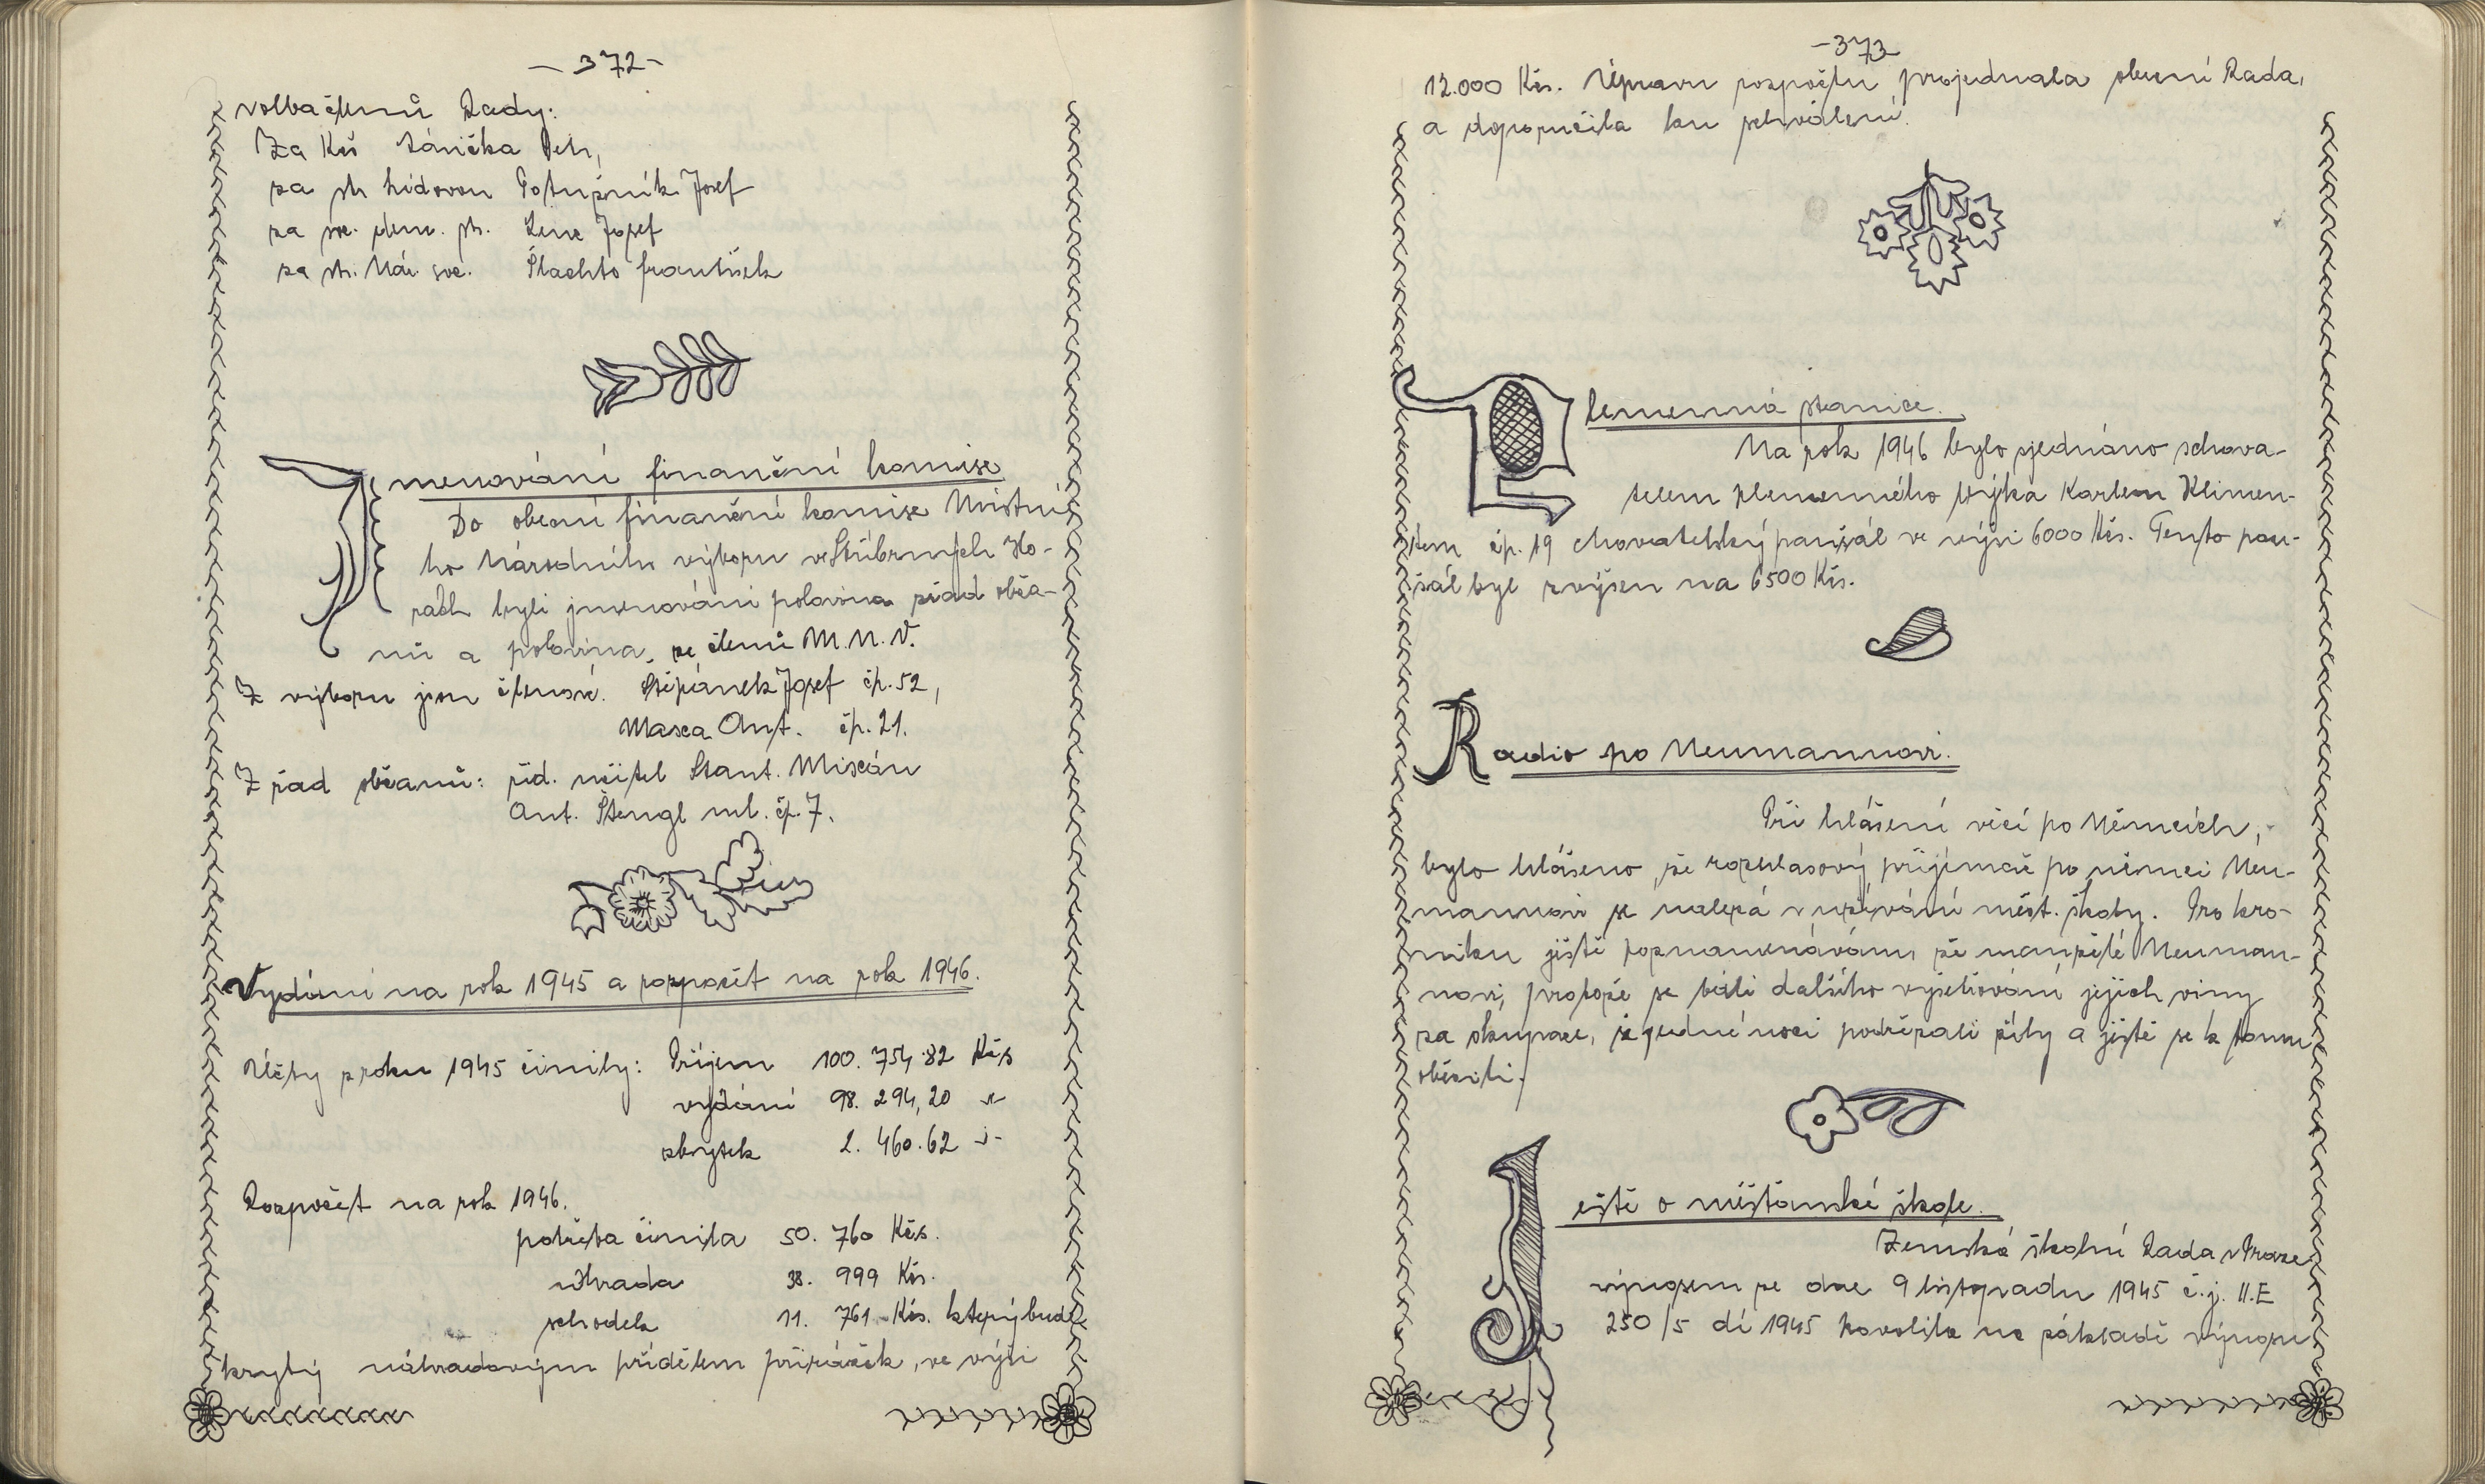 - 372 -
volba členů Rady:
Za Kčs Jánička Petr,
za str. lidovou Potužník Josef
za soc. dem. str. Lenc Josef
za str. Nár. soc. Šlachto František
Jmenování finanční komise
Do obecní finanční komise Místní-
ho Národního výboru ve Stříbrných Ho-
rách byli jmenováni polovina z řad obča-
nů a polovina ze členů M.N.V.
Z výboru jsou členové. Štěpánek Josef čp. 52,
Masca Ant. čp. 21.
Z řad občanů: říd. učitel Stant. Miscán
Ant. Štengl ml. čp. 7.
Vydání na rok 1945 a rozpočet na rok 1946.
Účty z roku 1945 činily: Příjem 100.754.82 Kčs
vydání 98.294,20 -"-
zbytek 2.460.62 -"-
Rozpočet na rok 1946.
potřeba činila 50.760 Kčs.
úhrada 38.999 Kčs.
schodek 11.761.- Kčs. který bude
krytý náhradovým přídělem přirážek, ve výši
- 373
12.000 Kčs. Úpravu rozpočtu projednala obecní Rada,
a doporučila ku schválení.
Plemenná stanice.
Na rok 1946 bylo sjednáno schova-
telem plemenného býka Karlem Klimen-
tem čp. 19 chovatelský paušál ve výši 6000 Kčs. Tento pau-
šál byl zvýšen na 6500 Kčs.
Radio po Neumannovi.
Při hlášení věcí po Němcích,
bylo hlášeno, že rozhlasový přijímač po němci Neu-
mannovi se nalezá v užívání měšt. školy. Pro kro-
niku ještě poznamenávám, že manželé Neuman-
novi, protože se báli dalšího vyšetřování jejich viny
za okupace, si jedné noci podřezali žíly a ještě se k tomu
oběsili.
Ještě o měšťanské škole.
Zemská školní Rada v Praze
výnosem ze dne 9 listopadu 1945 č.j. II.E
250/5 dí 1945 povolila na základě výnosu